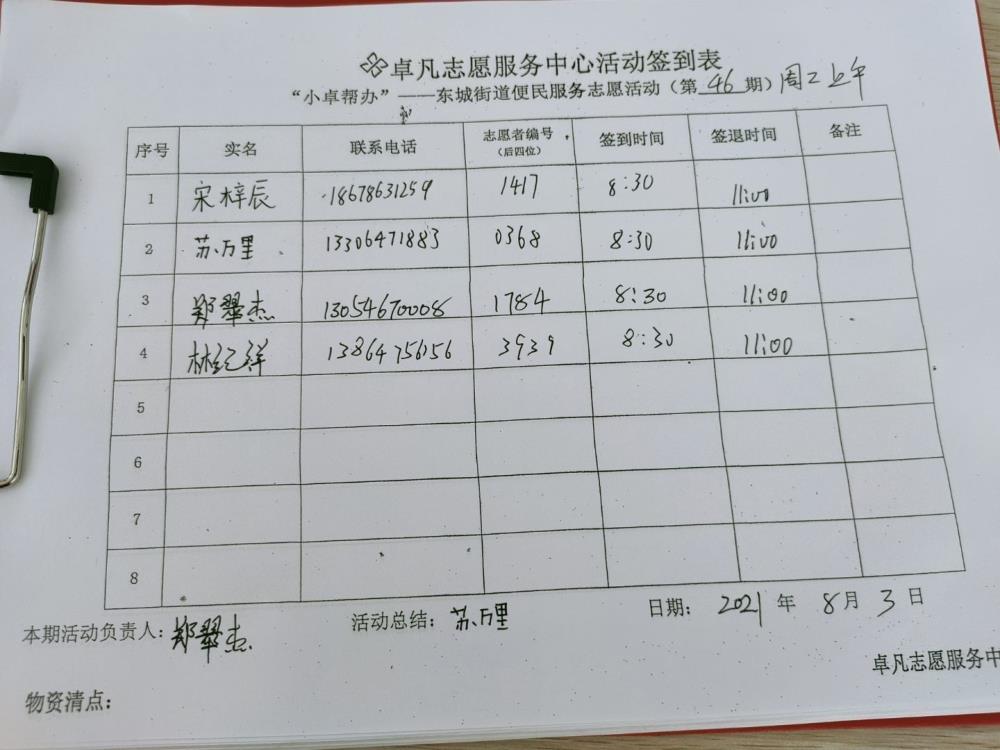 卓凡志愿服务中心活动签到表
“小卓帮办”——东城街道便民服务志愿活动（第 46 期）周二上午
序号 实名 联系电话 志愿者编号（后四位） 签到时间 签退时间 备注
1 宋梓辰 18678631259 1417 8:30 11:00
2 苏万里 13306471883 0368 8:30 11:00
3 郑翠杰 13054670008 1784 8:30 11:00
4 林纪祥 13864756156 3939 8:30 11:00
5
6
7
8
本期活动负责人：郑翠杰 活动总结：苏万里 日期：2021 年 8 月 3 日
卓凡志愿服务中
物资清点：